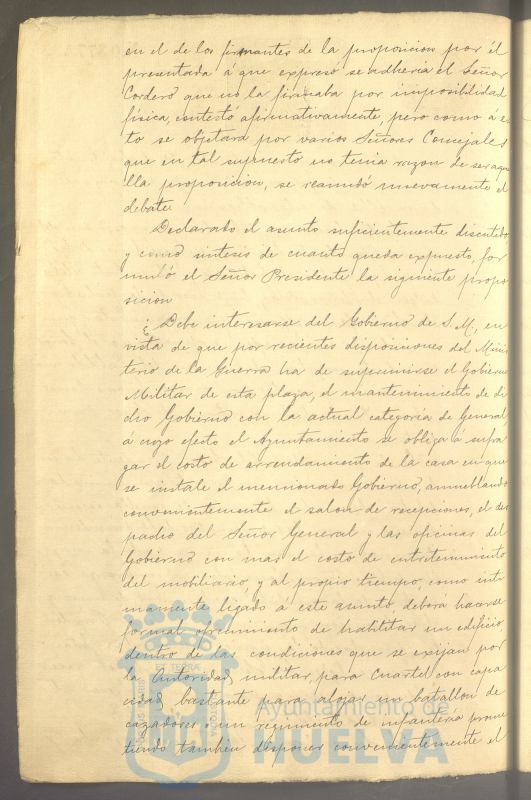 en el de los firmantes de la proposicion por él
presentada á que expresó se adheria el Señor
Cordero que no la firmaba por imposibilidad
física, contestó afirmativamente, pero como á es
to se objetara por varios Señores Concejales
que en tal supuesto no tenia razon de ser aque
lla proposicion, se reanudó nuevamente el
debate.
Declarado el asunto suficientemente discutido
y como sintesis de cuanto queda expuesto, for
muló el Señor Presidente la siguiente propo
sicion
¿Debe interesarse del Gobierno de S. M., en
vista de que por recientes disposiciones del Minis
terio de la Guerra ha de suprimirse el Gobierno
Militar de esta plaza, el mantenimiento de di
cho Gobierno con la actual categoria de General
á cuyo efecto el Ayuntamiento se obliga á sufra
gar el costo de arrendamiento de la casa en que
se instale el mencionado Gobierno, amueblando
convenientemente el salon de recepciones, el des
pacho del Señor General y las oficinas del
Gobierno con mas el costo de entretenimiento
del mobiliario, y al propio tiempo, como inti
mamente ligado á este asunto, deberá hacerse
formal ofrecimiento de habilitar un edificio
dentro de las condiciones que se exijan por
la Autoridad militar, para Cuartel con capa
cidad bastante para alojar un batallon de
cazadores o un regimiento de infanteria prome
tiendo tambien disponer convenientemente el
Ayuntamiento de
HUELVA